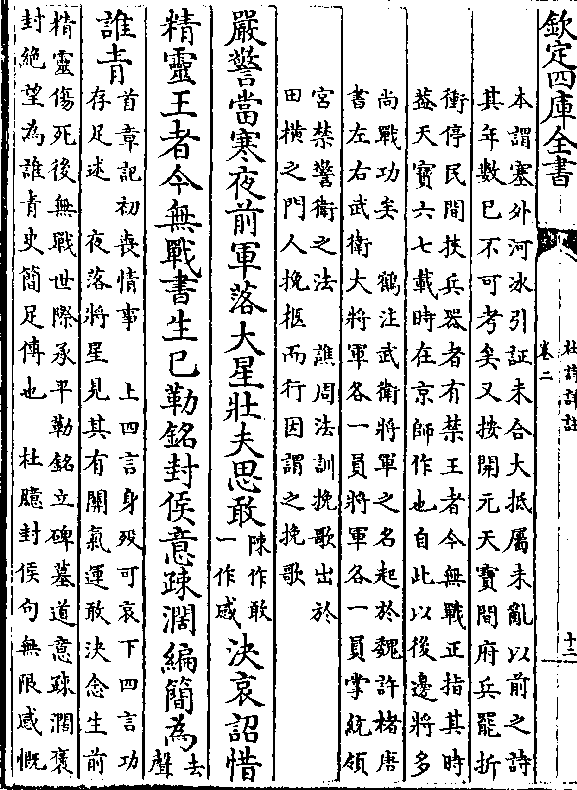 欽定四庫全書
杜詩詳註
卷二
十二
本謂塞外河冰引証未合大抵屬未亂以前之詩
其年數已不可考矣又按開元天寶間府兵罷折
衝停民間挾兵器者有禁王者今無戰正指其時
葢天寶六七載時在京師作也自此以後邊將多
尚戰功矣 鶴注武衛將軍之名起於魏許楮唐
書左右武衛大將軍各一員將軍各一員掌統領
宮禁警衛之法 譙周法訓挽歌出於
田橫之門人挽柩而行因謂之挽歌
嚴警當寒夜前軍落大星壯夫思敢陳作敢一作感決哀詔惜
精靈王者今無戰書生已勒銘封侯意疎濶編簡為去聲
誰青
首章記初喪情事 上四言身歿可哀下四言功
存足述 夜落將星見其有關氣運敢決念生前
精靈傷死後無戰世際承平勒銘立碑墓道意疎濶褒
封絕望為誰青史簡足傳也 杜臆封侯句無限感慨